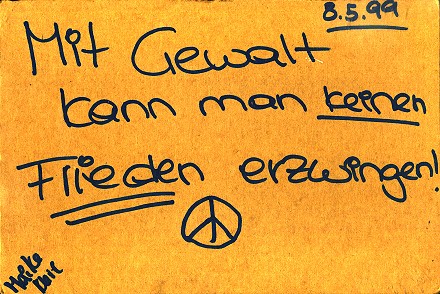 8.5.99
Mit Gewalt
kann man keinen
Frieden erzwingen!